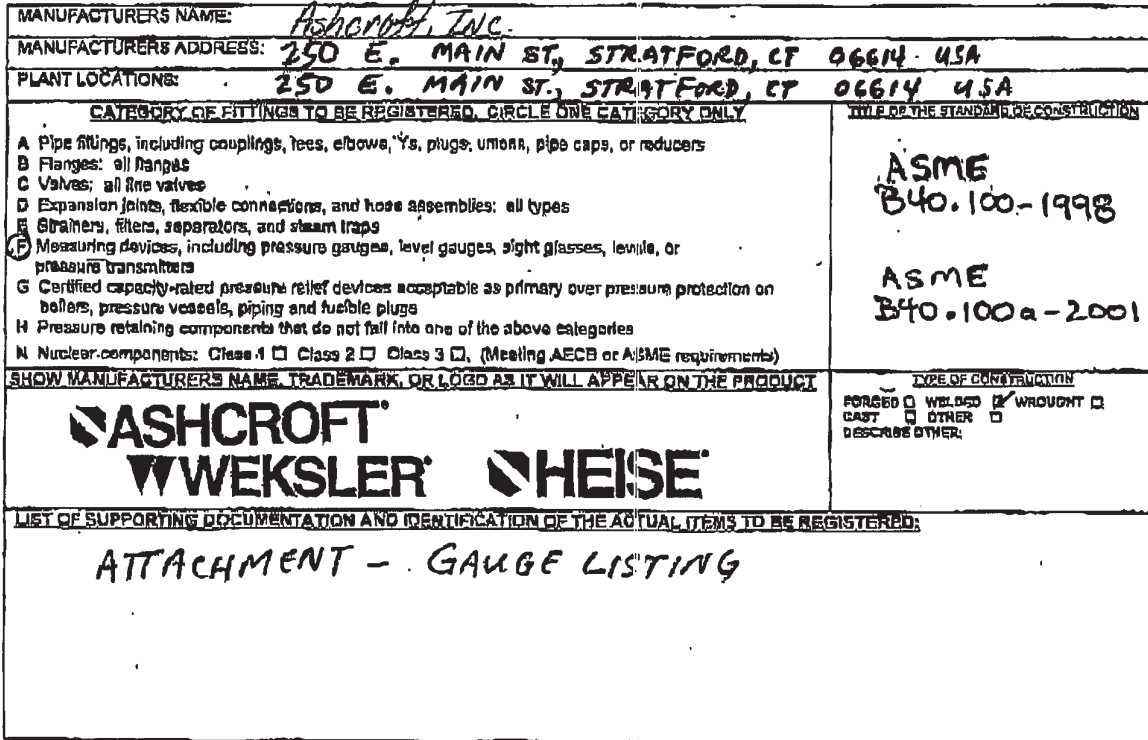 MANUFACTURERS NAME: Ashcroft, Inc.
MANUFACTURERS ADDRESS: 250 E. MAIN ST., STRATFORD, CT 06614 USA
PLANT LOCATIONS: 250 E. MAIN ST., STRATFORD, CT 06614 USA
CATEGORY OF FITTINGS TO BE REGISTERED, CIRCLE ONE CATEGORY ONLY
A Pipe fittings, including couplings, tees, elbows, Ys, plugs, unions, pipe caps, or reducers
B Flanges: all flanges
C Valves; all line valves
D Expansion joints, flexible connections, and hose assemblies: all types
E Strainers, filters, separators, and steam traps
F Measuring devices, including pressure gauges, level gauges, sight glasses, levels, or
pressure transmitters
G Certified capacity-rated pressure relief devices acceptable as primary over pressure protection on
boilers, pressure vessels, piping and fusible plugs
H Pressure retaining components that do not fall into one of the above categories
N Nuclear components: Class 1 ☐ Class 2 ☐ Class 3 ☐, (Meeting AECB or ASME requirements)
TITLE OF THE STANDARD OF CONSTRUCTION
ASME
B40.100-1998
ASME
B40.100a-2001
SHOW MANUFACTURERS NAME, TRADEMARK, OR LOGO AS IT WILL APPEAR ON THE PRODUCT
ASHCROFT
WEKSLER HEISE
TYPE OF CONSTRUCTION
FORGED ☐ WELDED ☑ WROUGHT ☐
CAST ☐ OTHER ☐
DESCRIBE OTHER:
LIST OF SUPPORTING DOCUMENTATION AND IDENTIFICATION OF THE ACTUAL ITEMS TO BE REGISTERED:
ATTACHMENT - GAUGE LISTING